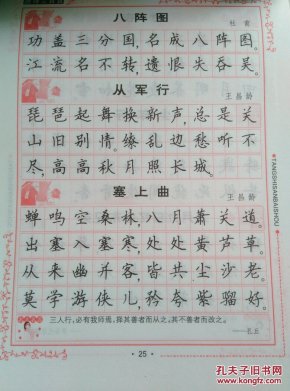 八阵图
杜甫
功盖三分国,名成八阵图。
江流石不转,遗恨失吞吴。
从军行
王昌龄
琵琶起舞换新声,总是关
山旧别情。缭乱边愁听不
尽,高高秋月照长城。
塞上曲
王昌龄
蝉鸣空桑林,八月萧关道。
出塞入塞寒,处处黄芦草。
从来幽并客,皆共尘沙老。
莫学游侠儿,矜夸紫骝好。
三人行,必有我师焉,择其善者而从之,其不善者而改之。
——孔丘
·25·
TANGSHISANBAISHOU
孔夫子旧书网